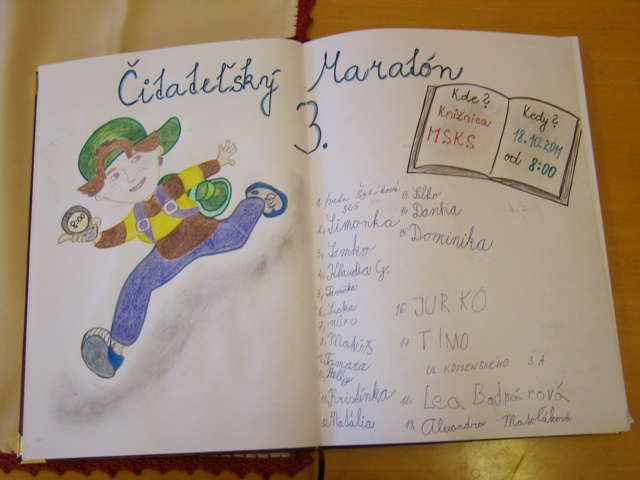 Čitateľský Maratón
3.
Kde?
Knižnica
MSKS
Kedy?
18.10.2011
od 8:00
8:00
1.
2, Simonka
3, Samko
4, Klaudia G.
5, Tamika
6, Lucka
7,
8, Matúš
9, Tamara
10,
11, Kristínka
12, Natália
13.
14. Danka
15. Dominika
16 JURKO
17 TIMO
UL KOMENSKÉHO 3. A
18. Lea Bodnárová
19. Alexandra Matoláková